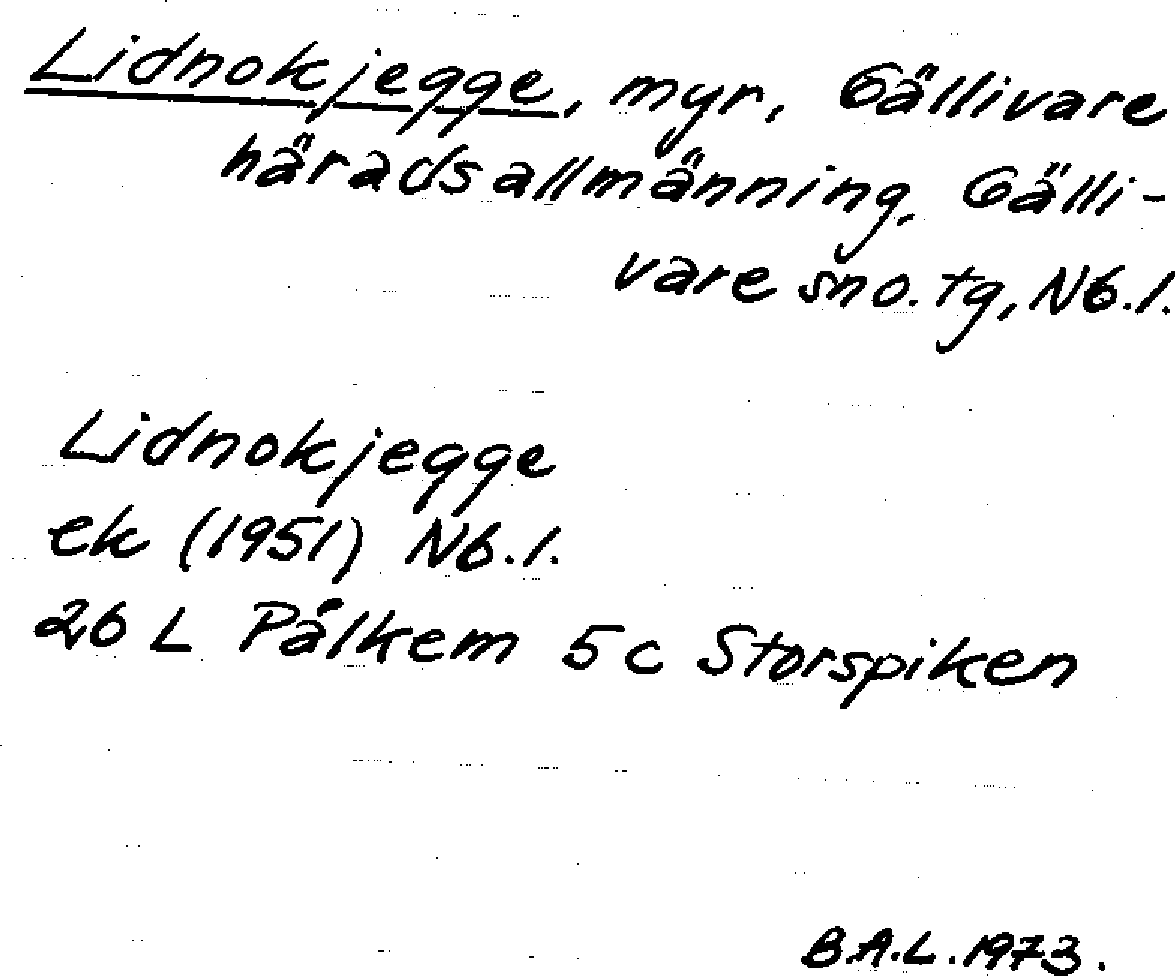 Lidnokjegge, myr, Gällivare
häradsallmänning, Gälli-
vare sno. tg, Nb. l.
Lidnokjegge
ek (1951) Nb. l.
26 L Pålkem 5 c Storspiken
B.A.L. 1973.